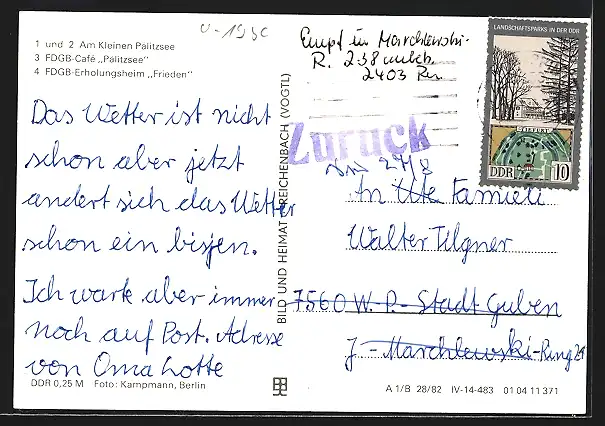 1 und 2 Am Kleinen Pälitzsee
3 FDGB-Café „Pälitzsee"
4 FDGB-Erholungsheim „Frieden"
Das Wetter ist nicht
schon aber jetzt
andert sich das Wetter
schon ein bisjen.
Ich warte aber immer
noch auf Post. Adresse
von Oma Lotte
DDR 0,25 M Foto: Kampmann, Berlin
BILD UND HEIMAT REICHENBACH (VOGTL)
Empf in Marchlewski-
R. 238 unbek.
2403
Zurück
LANDSCHAFTSPARKS IN DER DDR
TIEFURT
DDR 10
An Familie
Walter Tilgner
7560 W. P.-Stadt Guben
J-Marchlewski-Ring
A 1/B 28/82 IV-14-483 01 04 11 371